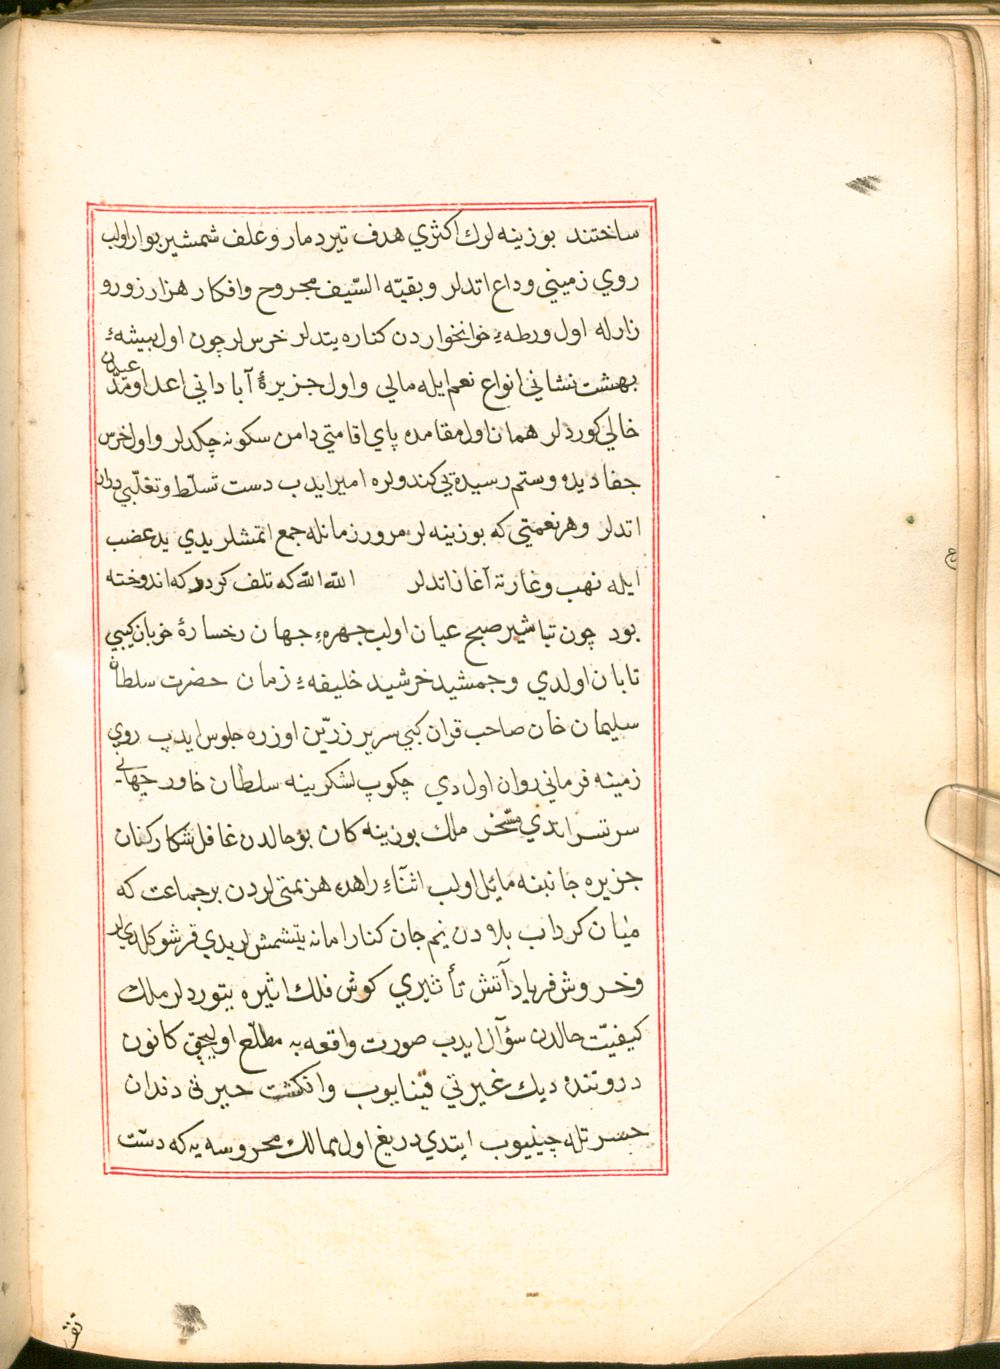 ساختند بوزينه لرك اكثري هدف تير دمار و علف شمشير بوار اولب
روي زميني وداع اتدلر و بقيّه السّيف مجروح و افكار هزار زور و
زارله اول ورطهٔ خوانخواردن كناره يتدلر خرس لر چون اول بيشهٔ
بهشت نشاني انواع نعم ايله مالي و اول جزيرهٔ آباداني اعدا و
خالي كوردلر همان اول مقامده پاي اقامتي دامن سكونه چكدلر و اول خرس
جفا ديده و ستم رسيده يي كندولره امير ايدب دست تسلّط و تغلّبي دراز
اتدلر و هر نعمتي كه بوزينه لر مرور زمانله جمع اتمشلريدي يد غضب
ايله نهب و غارته آغاز اتدلر الله الله كه تلف كرد و كه اندوخته
بود چون تباشير صبح عيان اولب چهرهٔ جهان رخسارهٔ خوبان كيبي
تابان اولدي و جمشيد خرشيد خليفهٔ زمان حضرت سلطان
سليمان خان صاحب قران كبي سرير زرّين اوزره جلوس ايدپ روي
زمينه فرماني روان اولدي چكوپ لشكرينه سلطان خاور جهاني
سرتسر اتدي مسّخر ملك بوزينه كان بو حالدن غافل شكار كنان
جزيره جانبنه مايل اولب اثنآء راهده هزيمتي لردن بر جماعت كه
ميان كرداب بلادن نيم جان كنار امانه يتشمش لريدي قرشو كلدي لر
و خروش فرياد آتش تأثيري كوش فلك اثيره يتوردلر ملك
كيفيّت حالدن سؤآل ايدب صورت واقعه يه مطلّع اوليجق كانون
دروننده ديك غيرتي قينايوب و انكشت حيرتى دندان
حسرتله چينيوب ايتدي دريغ اول ممالك محروسه يه كه دست